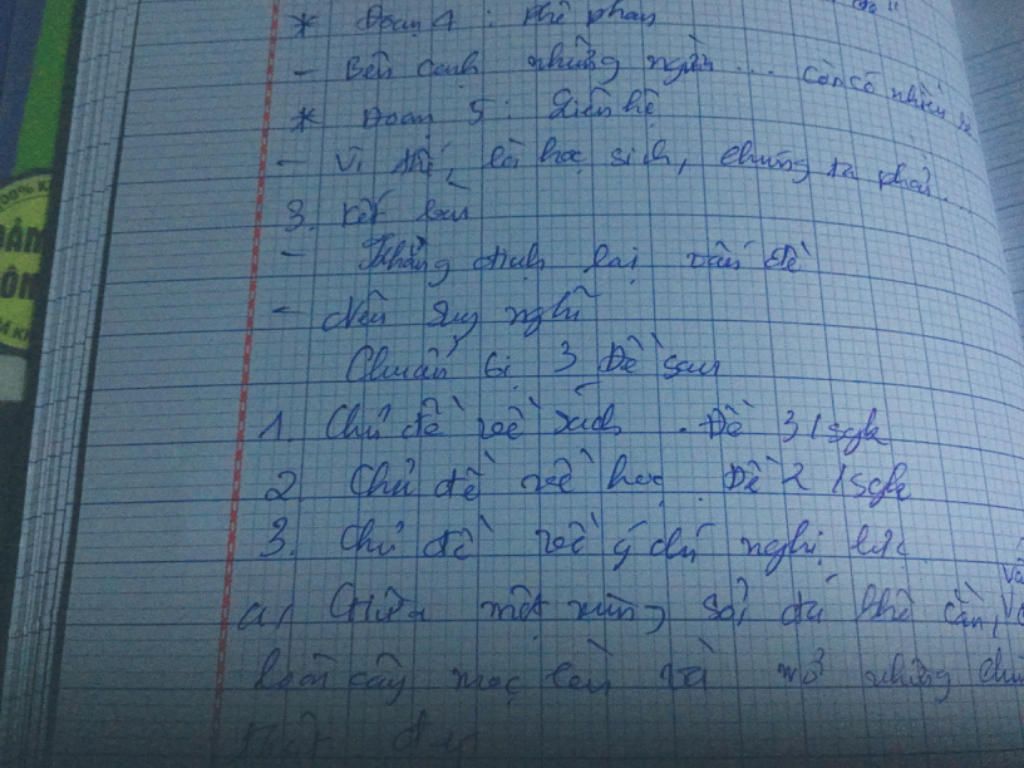 * Đoạn 4 : Phê phán
- Bên cạnh những người ... còn có nhiều
* Đoạn 5 : Liên hệ
- Vì thế, là học sinh, chúng ta phải ...
3. Kết luận
- Khẳng định lại vấn đề
- Nêu suy nghĩ
Chuẩn bị 3 Đề sau
1. Chủ đề về sách . Đề 3 / sgk
2 Chủ đề về học . Đề 2 / sgk
3. Chủ đề về ý chí nghị lực
a, Giữa một vùng sỏi đá khô cằn,
loài cây mọc lên và nở những